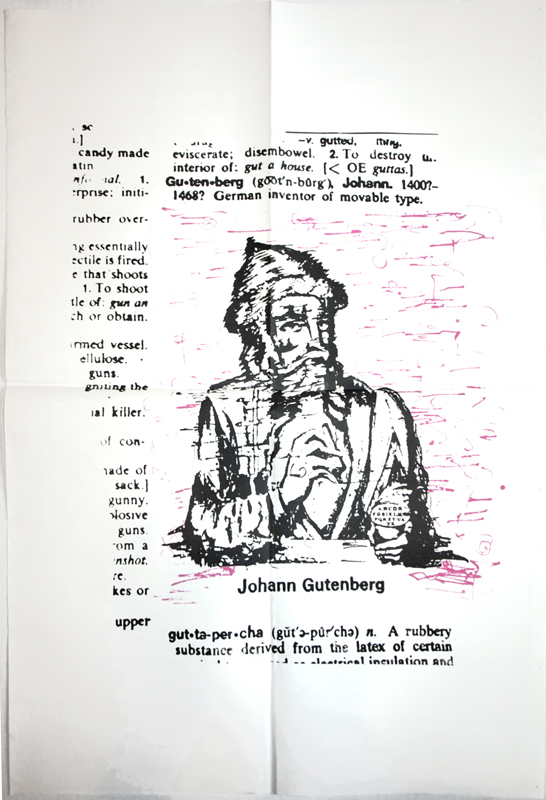 sc
.]
candy made
atin
nformal. 1.
erprise; initi-
rubber over-
ng essentially
ectile is fired.
e that shoots
1. To shoot
tle of: gun an
ch or obtain.
rmed vessel.
ellulose.
guns.
igniting the
ial killer.
of con-
nade of
sack.]
gunny.
plosive
guns.
om a
nshot.
re.
kes or
upper
—v. gutted,
eviscerate; disembowel. 2. To destroy
interior of: gut a house. [< OE guttas.]
Gu•ten•berg (go͞ot′n-bûrg′), Johann. 1400?–
1468? German inventor of movable type.
Johann Gutenberg
gut•ta-per•cha (gŭt′ə-pûr′chə) n. A rubbery
substance derived from the latex of certain
as electrical insulation and